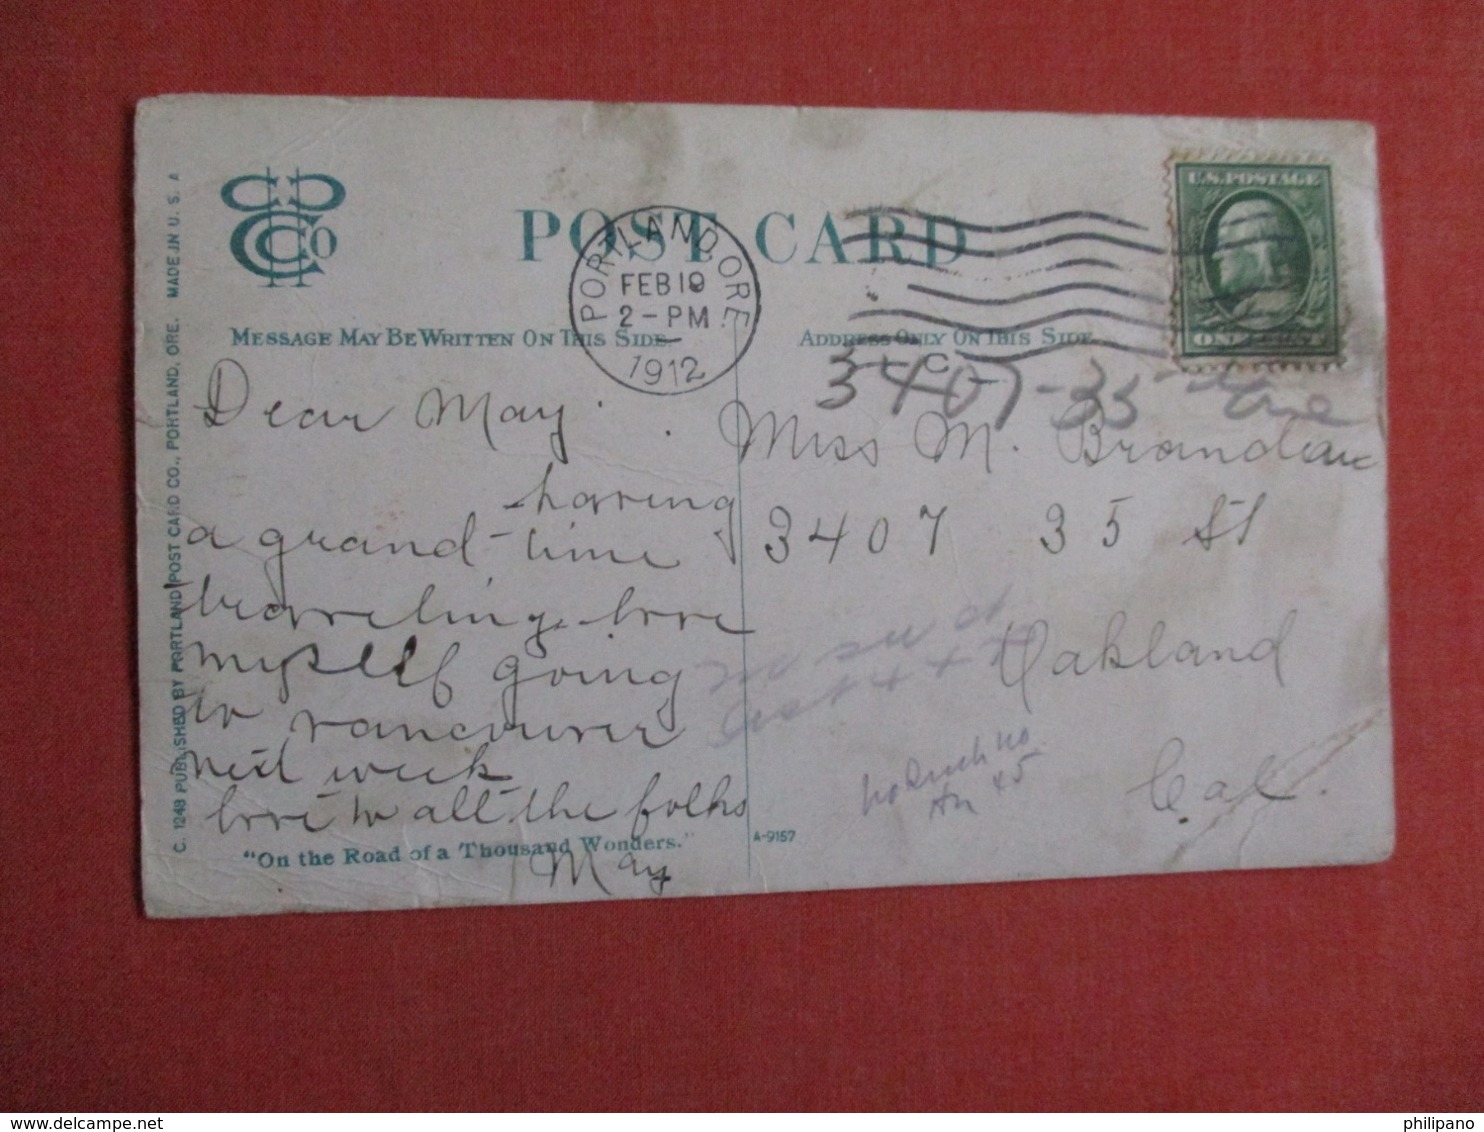 C. 1248 PUBLISHED BY PORTLAND POST CARD CO., PORTLAND, ORE. MADE IN U. S. A
CO
POST CARD
PORTLAND, ORE.
FEB 19
2-PM
1912
C
U.S. POSTAGE
ONE CENT
MESSAGE MAY BE WRITTEN ON THIS SIDE
ADDRESS ONLY ON THIS SIDE
3407-35 Ave
Dear May
having
a grand time
traveling love
myself going
to vancouver
next week
love to all the folks
May
"On the Road of a Thousand Wonders."
A-9157
Miss M.
3407 35 St
Oakland
Cal.
no such no
on 45
delcampe.net
philipano